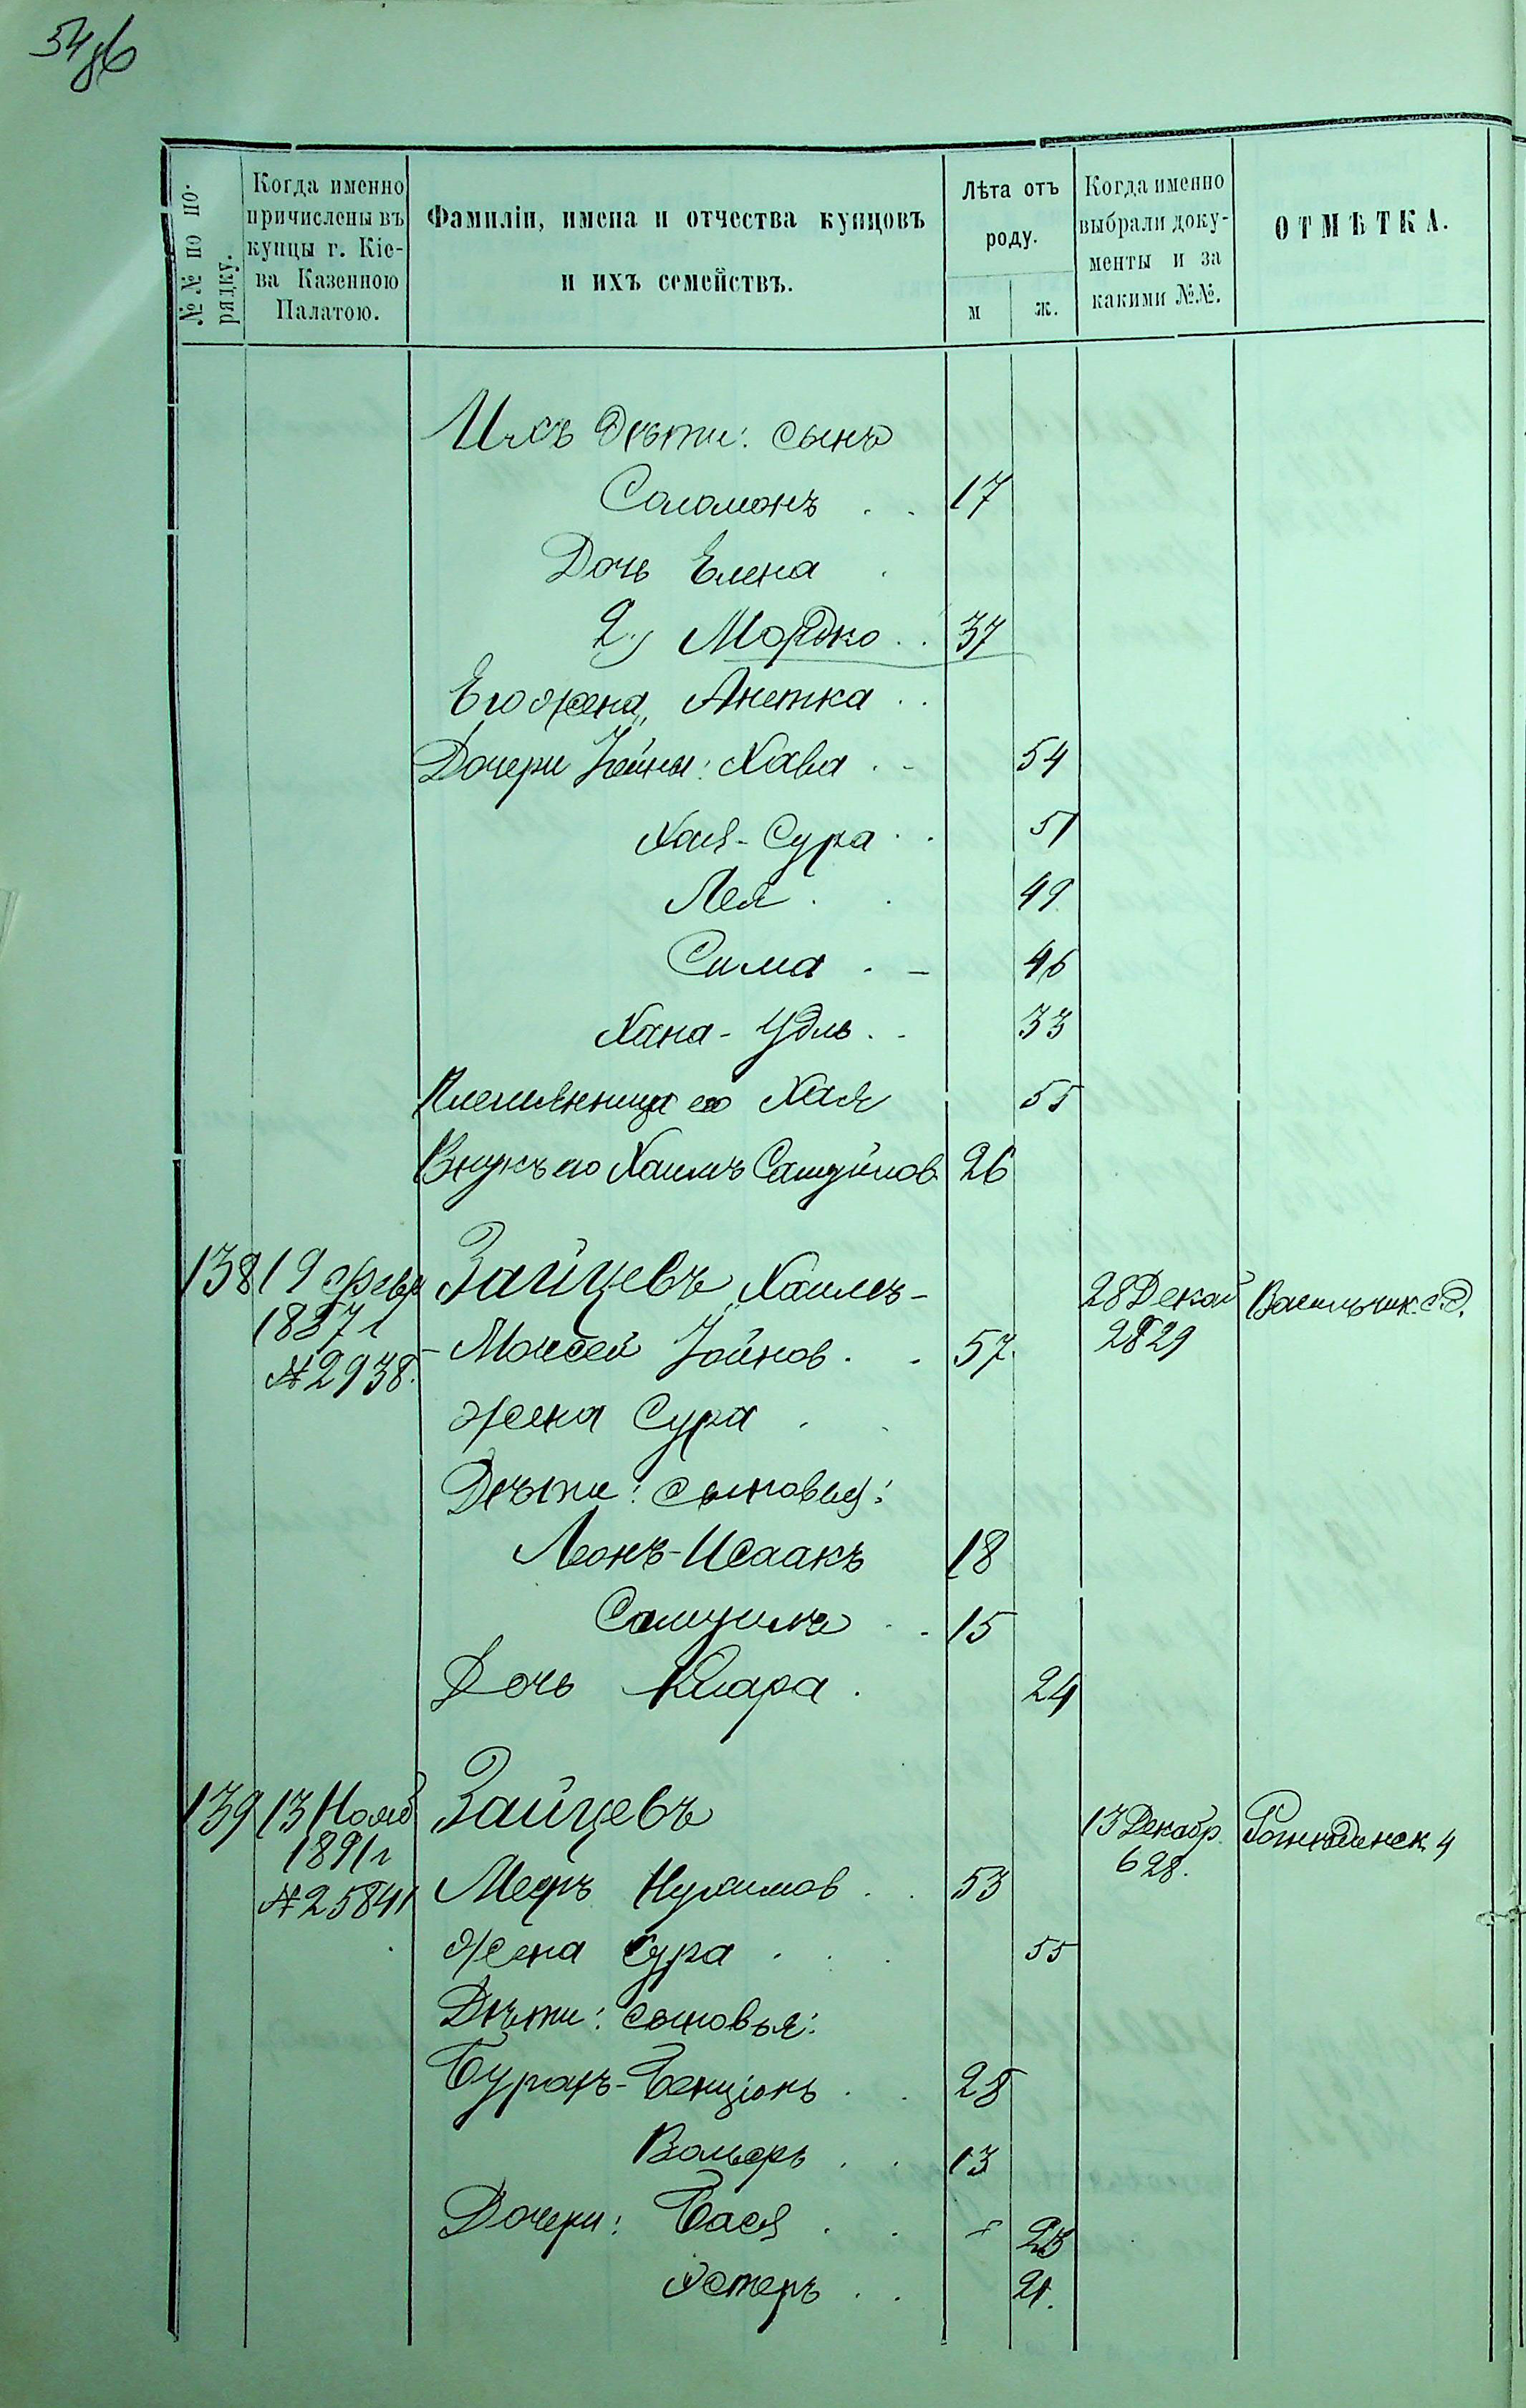 54 об
№№ по по-
рядку.
Когда именно
причислены въ
купцы г. Кіе-
ва Казенною
Палатою.
Фамиліи, имена и отчества купцовъ
и ихъ семействъ.
Лѣта отъ
роду.
м
ж.
Когда именно
выбрали доку-
менты и за
какими №№.
ОТМѢТКА.
Ихъ дѣти: сынъ
Соломонъ . . 17
Дочь Елена .
2) Мордко . . 37
Его жена Анетка . .
Дочери Іойны: Хава . - 54
Хая-Сура . . 51
Лея . . 49
Сима . - 46
Хана-Удль . . 33
Племянница его Хая 55
Внукъ его Хаимъ Самуйлов 26
138 19 Февр Зайцевъ Хаимъ- 28 Декаб Васильчик.
1887 г -Моисей Іойнов . . 57 2829
№ 2938.
Жена Сура . .
Дѣти: сыновья:
Леонъ-Исаакъ 18
Самуилъ . . 15
Дочь Клара . 24
139 13 Нояб Зайцевъ 13 Декабр.
1891 г 628.
№ 25841 Мееръ Нухимов . . 53
Жена Сура . . . 55
Дѣти: сыновья:
Бурахъ-Бенціонъ . . 28
Вольфъ . . 13
Дочери: Бася . . 23
Эстеръ . . 21.